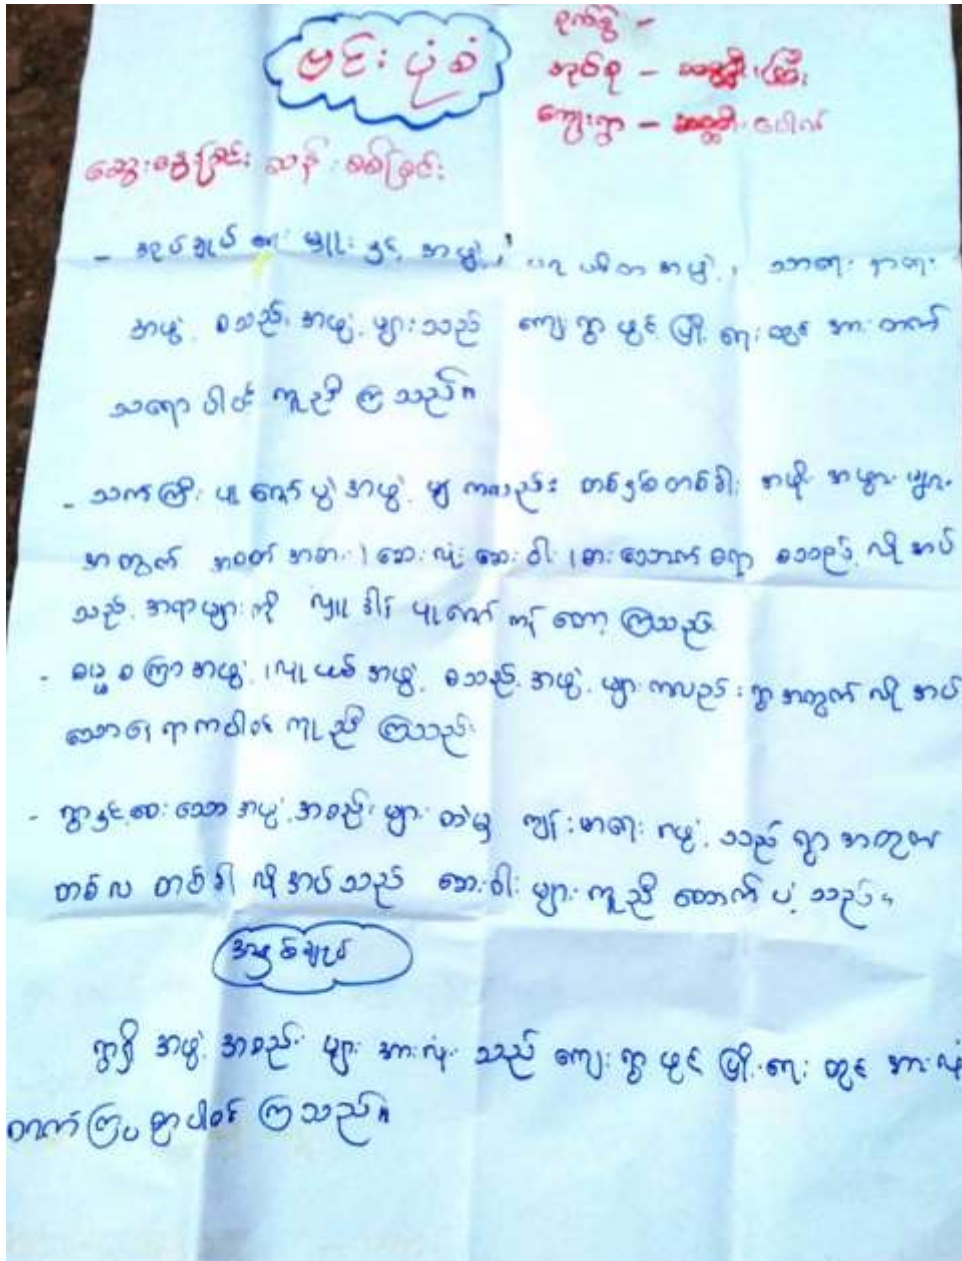 ဗင်းပုံစံ
ရက်စွဲ -
အုပ်စု - ကြီး
ကျေးရွာ - ပေါက်
ဆွေးနွေးခြင်း သန်းစစ်ခြင်း
- အုပ်ချုပ်ရေးမှူးနှင့် အဖွဲ့၊ ပရဟိတအဖွဲ့၊ သာရေးနာရေး
အဖွဲ့ စသည့်အဖွဲ့များသည် ကျေးရွာဖွံ့ဖြိုးရေးတွင် အားတက်
သရောပါဝင် ကူညီကြသည်။
- သက်ကြီးပူဇော်ပွဲအဖွဲ့မှ ကလည်း တစ်နှစ်တစ်ခါ အဖိုးအဖွားများ
အတွက် အဝတ်အစား၊ ဆေးလုံးဆေးဝါး၊ စားသောက်စရာ စသည့် လိုအပ်
သည့်အရာများကို လှူဒါန်းပူဇော်ကန်တော့ကြသည်။
- ဓမ္မစကြာအဖွဲ့၊ လူငယ်အဖွဲ့ စသည့်အဖွဲ့များကလည်း ရွာအတွက် လိုအပ်
သောနေရာကပါဝင်ကူညီကြသည်။
- ရွာနှင့်ဝေးသော အဖွဲ့အစည်းများထဲမှ ကျန်းမာရေးအဖွဲ့သည် ရွာအတွက်
တစ်လတစ်ခါ လိုအပ်သည့် ဆေးဝါးများ ကူညီထောက်ပံ့သည်။
အနှစ်ချုပ်
ရွာရှိ အဖွဲ့အစည်းများအားလုံးသည် ကျေးရွာဖွံ့ဖြိုးရေးတွင် အားလုံး
တက်ကြွစွာပါဝင်ကြသည်။